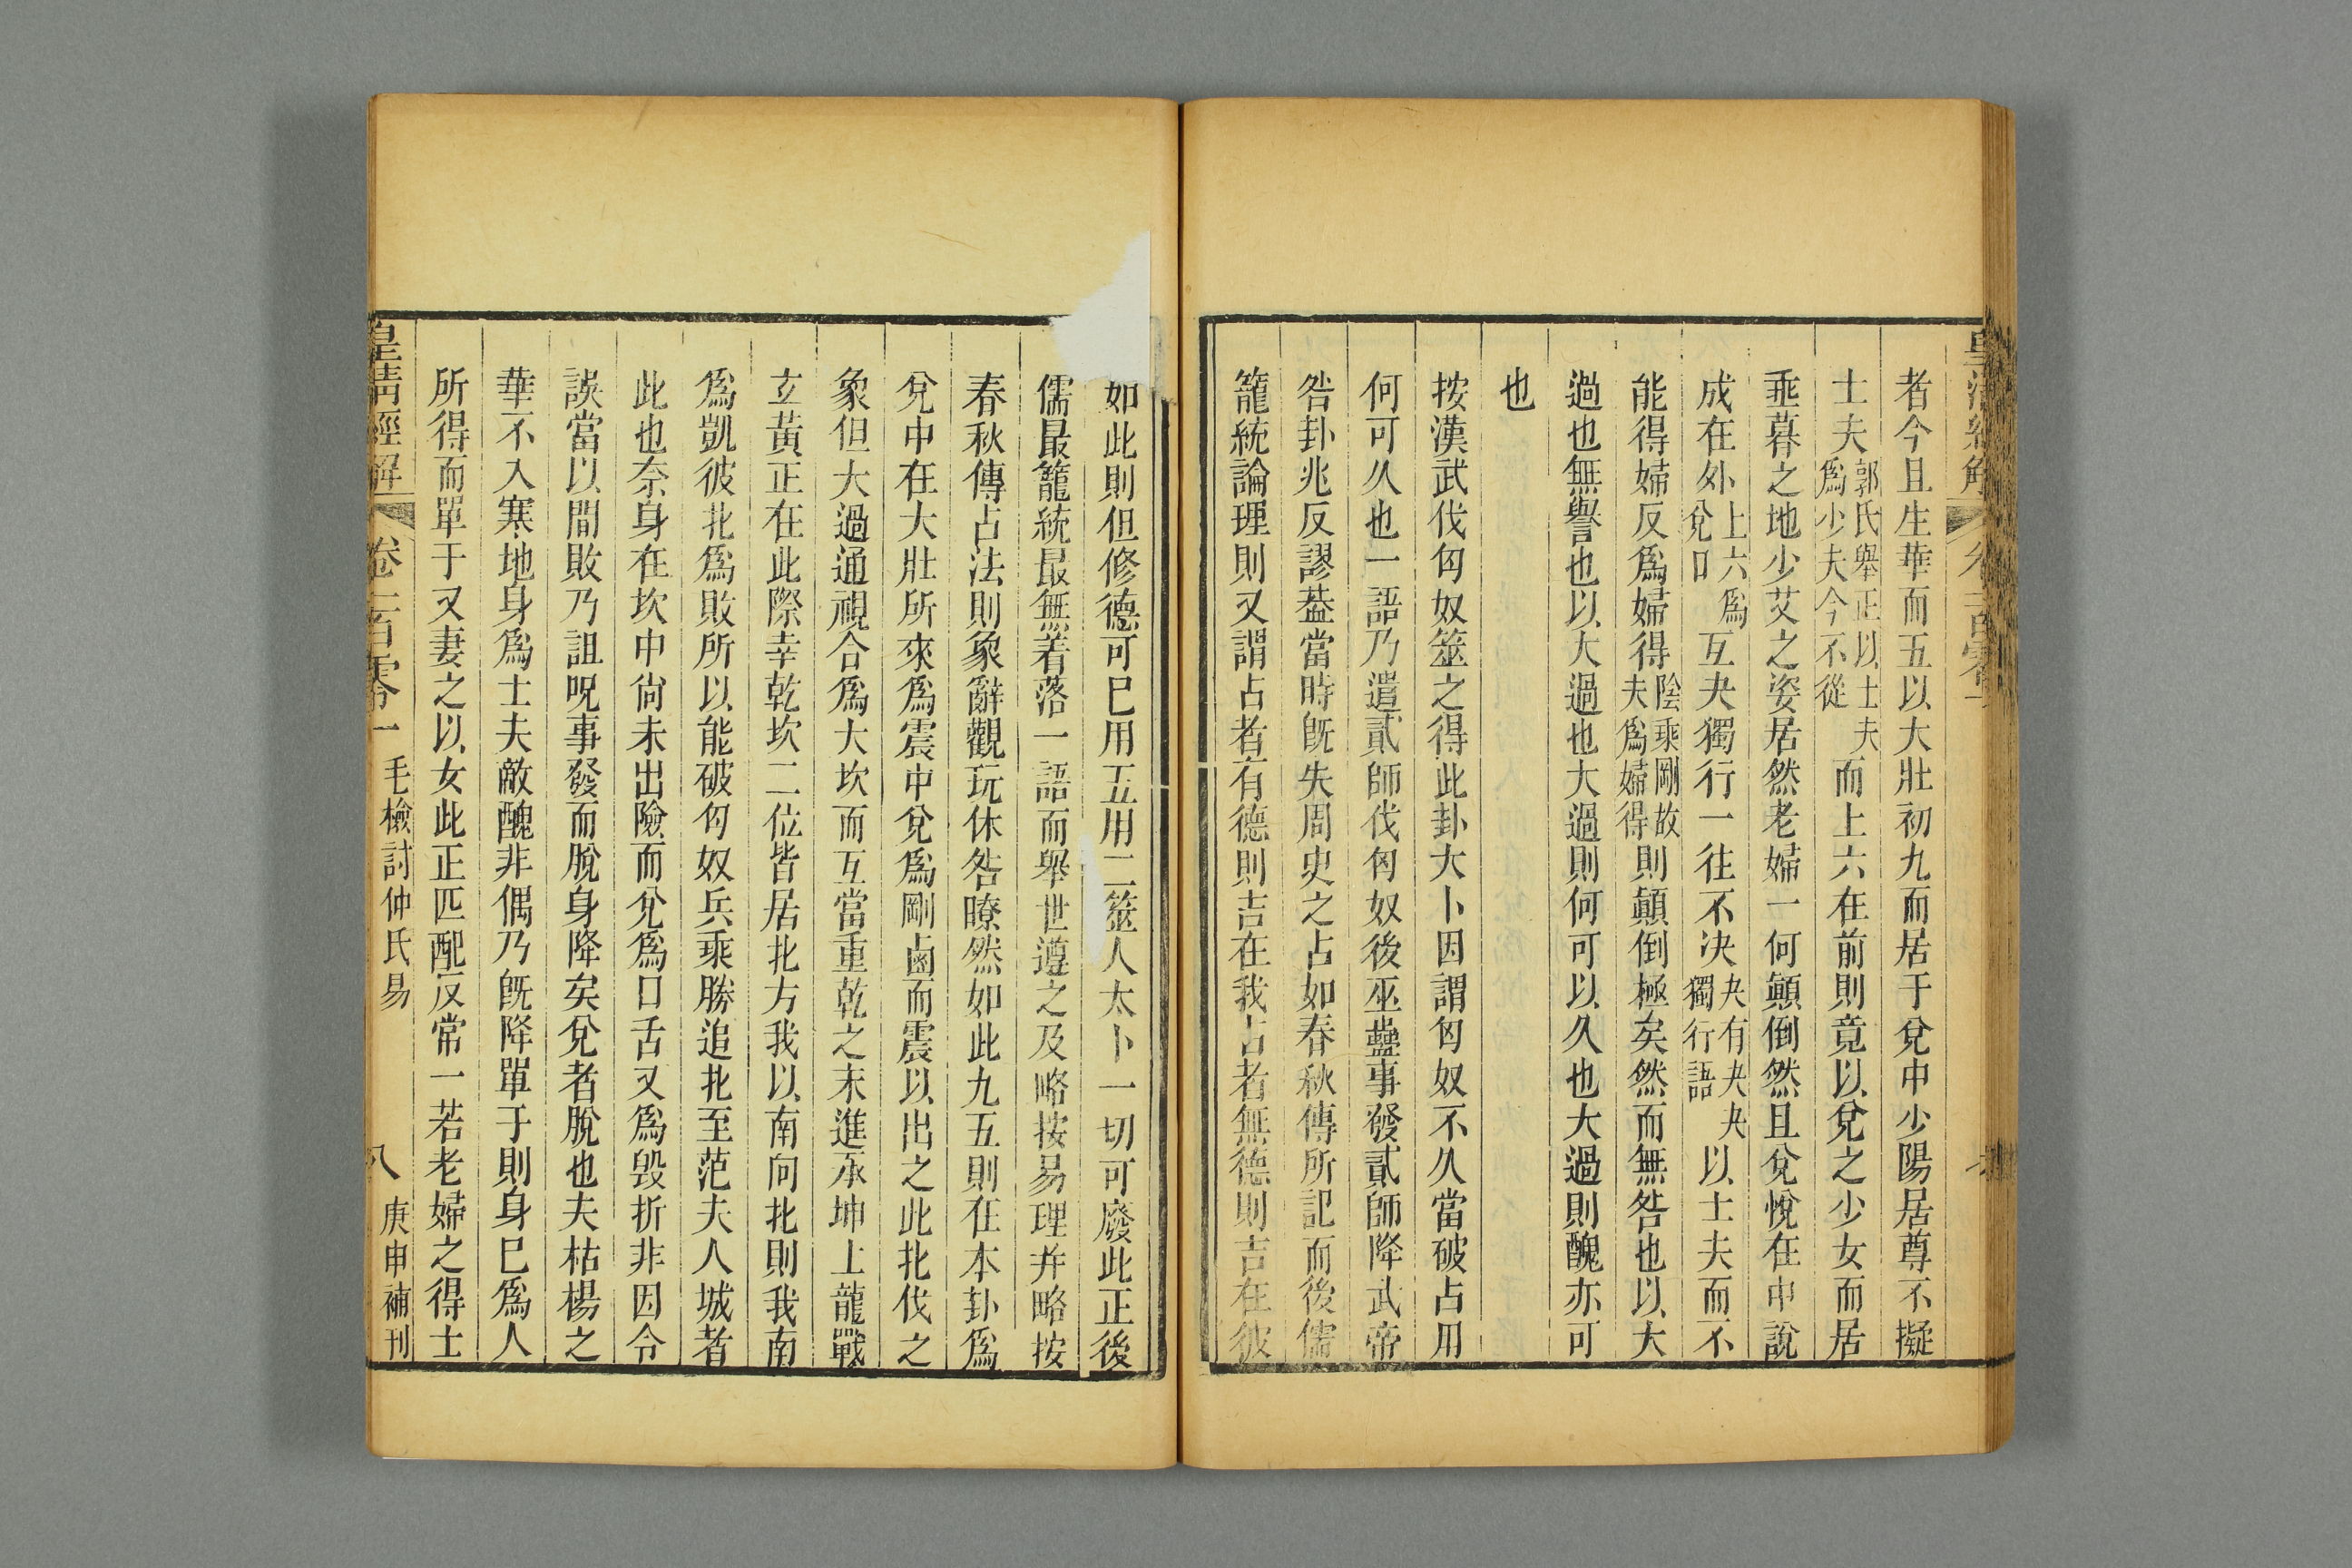 者今且生華而五以大壯初九而居于兌中少陽居尊不擬
士夫郭氏舉正以士夫爲少夫今不從而上六在前則竟以兌之少女而居
垂暮之地少艾之姿居然老婦一何顛倒然且兌悅在中說
成在外上六爲兌口互夬獨行一往不決夬有夬夬獨行語以士夫而不
能得婦反爲婦得陰乘剛故夫爲婦得則顛倒極矣然而無咎也以大
過也無譽也以大過也大過則何可以久也大過則醜亦可
也
按漢武伐匈奴筮之得此卦大卜因謂匈奴不久當破占用
何可久也一語乃遣貳師伐匈奴後巫蠱事發貳師降武帝
咎卦兆反謬葢當時旣失周史之占如春秋傳所記而後儒
籠統論理則又謂占者有德則吉在我占者無德則吉在彼
如此則但修德可巳用五用二筮人太卜一切可廢此正後
儒最籠統最無着落一語而舉世遵之及略按易理幷略按
春秋傳占法則象辭觀玩休咎瞭然如此九五則在本卦爲
兌中在大壯所來爲震中兌爲剛鹵而震以出之此北伐之
象但大過通視合爲大坎而互當重乾之末進承坤上龍戰
玄黃正在此際幸乾坎二位皆居北方我以南向北則我南
爲凱彼北爲敗所以能破匈奴兵乘勝追北至范夫人城者
此也奈身在坎中尙未出險而兌爲口舌又爲毀折非因令
誤當以間敗乃詛呪事發而脫身降矣兌者脫也夫枯楊之
華不入寒地身爲士夫敵醜非偶乃旣降單于則身巳爲人
所得而單于又妻之以女此正匹配反常一若老婦之得士
皇淸經解
卷一百零一
毛檢討仲氏易
八
庚申補刊